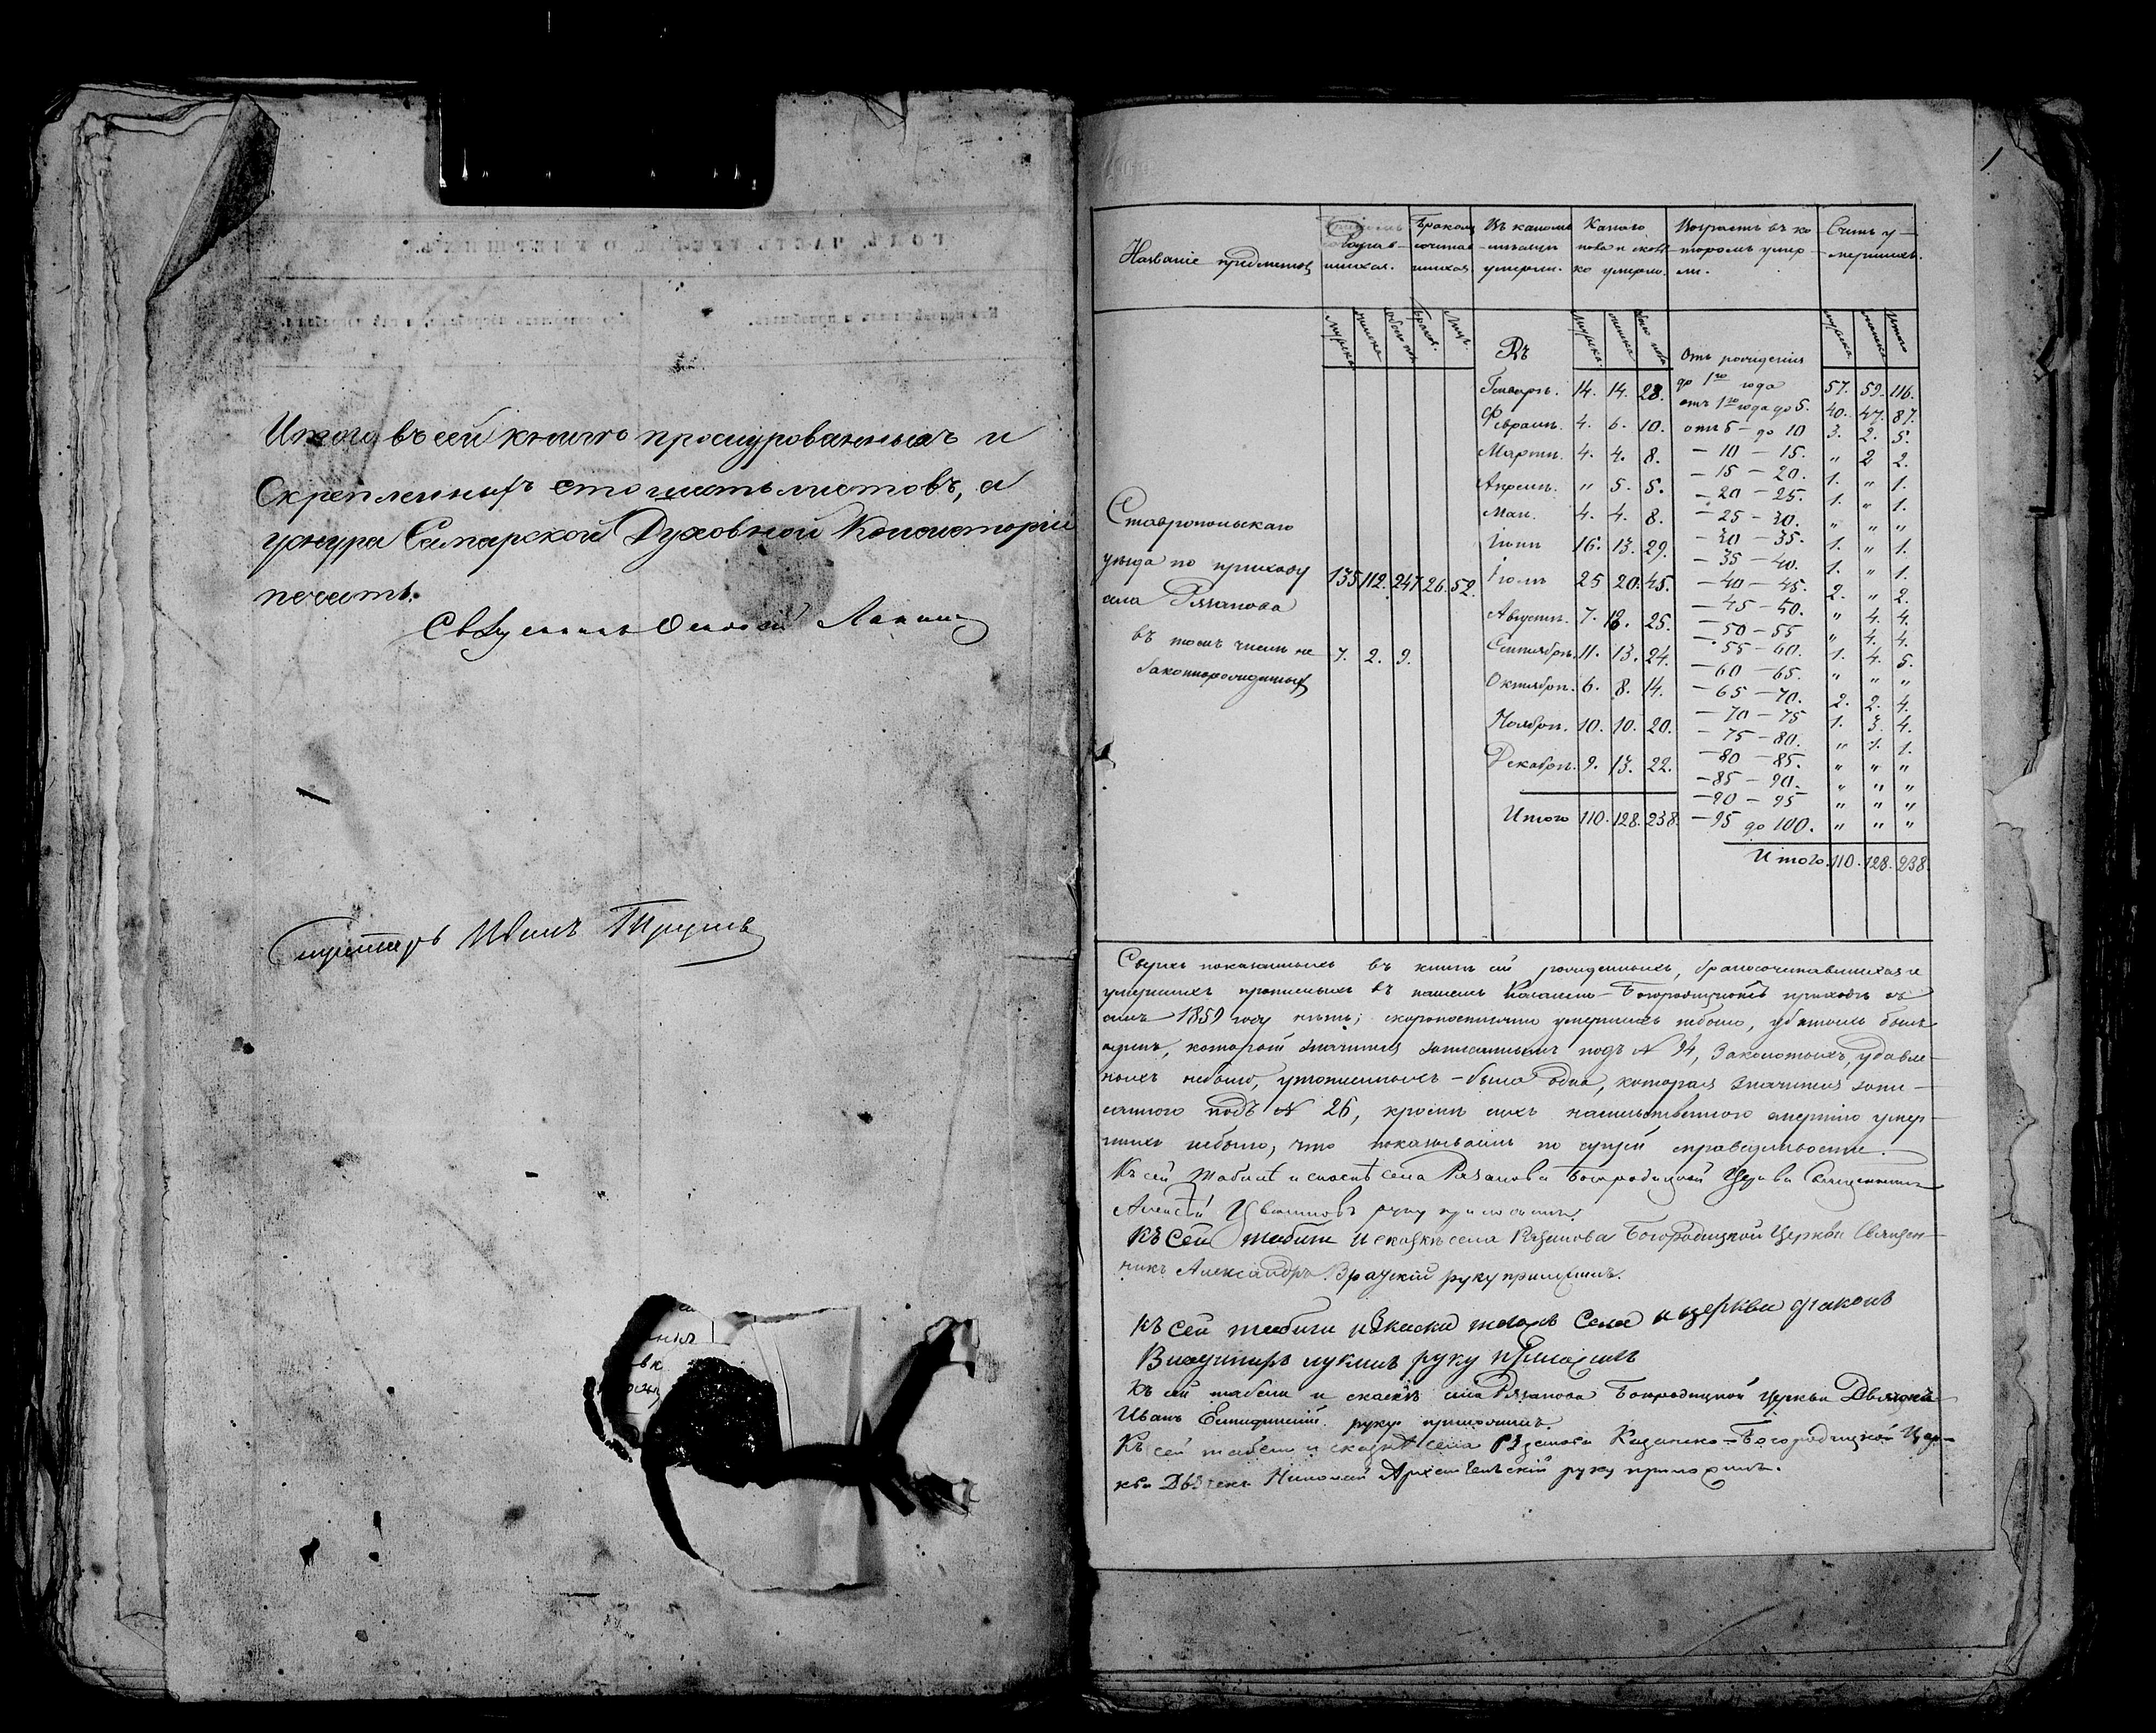 Итого въ сей книге прошнурованныхъ и
скрепленныхъ сто шесть листовъ, а
у снура Самарской Духовной Консисторіи
печать.
Секретарь Иванъ
1
Названіе предметовъ
родив-
шихся.
Бракомъ
сочетав-
шихся
Въ какомъ
месяце
умерли.
Какого
пола и сколь-
ко умерло.
Возрастъ въ ко-
торомъ умер-
ли.
Счетъ у-
мершихъ.
Мужска Женска Обоего пол. Браков. Лицъ. Въ Мужска Женска Обоего пол. Отъ рожденія Мужска Женска Итого
Генваре. 14. 14. 28. до 1го года 57. 59. 116.
Феврале. 4. 6. 10. отъ 1го года до 5. 40. 47. 87.
отъ 5 – до 10 3. 2. 5.
Марте. 4. 4. 8. – 10 – 15. " 2 2.
Апреле. " 5. 5. – 15 – 20. 1. " 1.
– 20 – 25. 1. " 1.
Мае. 4. 4. 8. – 25 – 30. " " "
Іюне 16. 13. 29. – 30 – 35. 1. " 1.
– 35 – 40. 1. " 1.
Іюле 25 20. 45. – 40 – 45. 2. " 2.
– 45 – 50. " 4. 4.
Августе. 7. 18. 25. – 50 – 55 " 4. 4.
Сентябре. 11. 13. 24. – 55 – 60. 1. 4. 5.
– 60 – 65. " " "
Октябре. 6. 8. 14. – 65 – 70. 2. 2. 4.
Ноябре. 10. 10. 20. – 70 – 75 1. 3. 4.
– 75 – 80. " 1. 1.
Декабре. 9. 13. 22. – 80 – 85. " " "
– 85 – 90. " " "
– 90 – 95 " " "
Итого 110. 128. 238. – 95 до 100. " " "
Итого. 110. 128. 238.
Ставропольскаго
уезда по приходу
села Рязанова 135 112. 247. 26. 52.
въ томъ числе не
законнорожденныхъ 7. 2. 9.
Сверхъ показанныхъ въ книге сей рожденныхъ, бракосочетавшихся и
умершихъ прописныхъ въ нашемъ Казанско-Богородицкомъ приходе въ
семъ 1859 году нетъ; скоропостижно умершихъ небыло, убитыхъ былъ
одинъ, который значится записаннымъ подъ № 94, Заколотыхъ, удавле-
ныхъ небыло, утопленныхъ – была одна, которая значится запи-
санною подъ № 26, кроме сихъ насильственною смертію умер-
шихъ небыло, что показываемъ по сущей справедливости.
Къ сей табели и сказкѣ села Рязанова Богородицкой Церкви Священникъ
Алексѣй Цветковъ руку приложилъ.
Къ сей табели и сказкѣ села Рязанова Богородицкой Церкви Священ-
никъ Александръ руку приложилъ.
Къ сей табели и сказки тогожъ Села и церкви діаконъ
руку приложилъ
Къ сей табели и сказкѣ села Рязанова Богородицкой церкви Дьячокъ
Иванъ руку приложилъ
Къ сей табели и сказкѣ села Рязанова Казанско-Богородицкой Цер-
кви Дьячекъ Николай Архангельскій руку приложилъ.